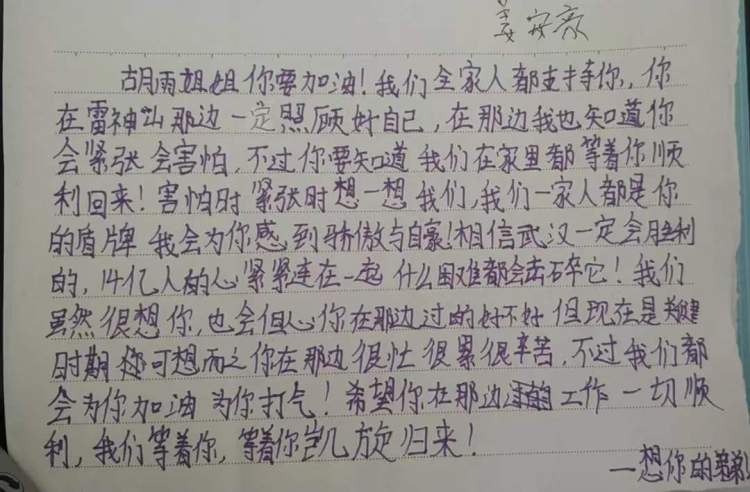 姜安彦
胡雨姐姐你要加油！我们全家人都支持你，你
在雷神山那边一定照顾好自己，在那边我也知道你
会紧张会害怕，不过你要知道我们在家里都等着你顺
利回来！害怕时紧张时想一想我们，我们一家人都是你
的盾牌 我会为你感到骄傲与自豪！相信武汉一定会胜利
的，14亿人的心紧紧连在一起 什么困难都会击碎它！我们
虽然很想你，也会但心你在那边过的好不好 但现在是关键
时期 可想而之你在那边很忙很累很辛苦，不过我们都
会为你加油 为你打气！希望你在那边工作一切顺
利，我们等着你，等着你凯旋归来！
—想你的弟弟